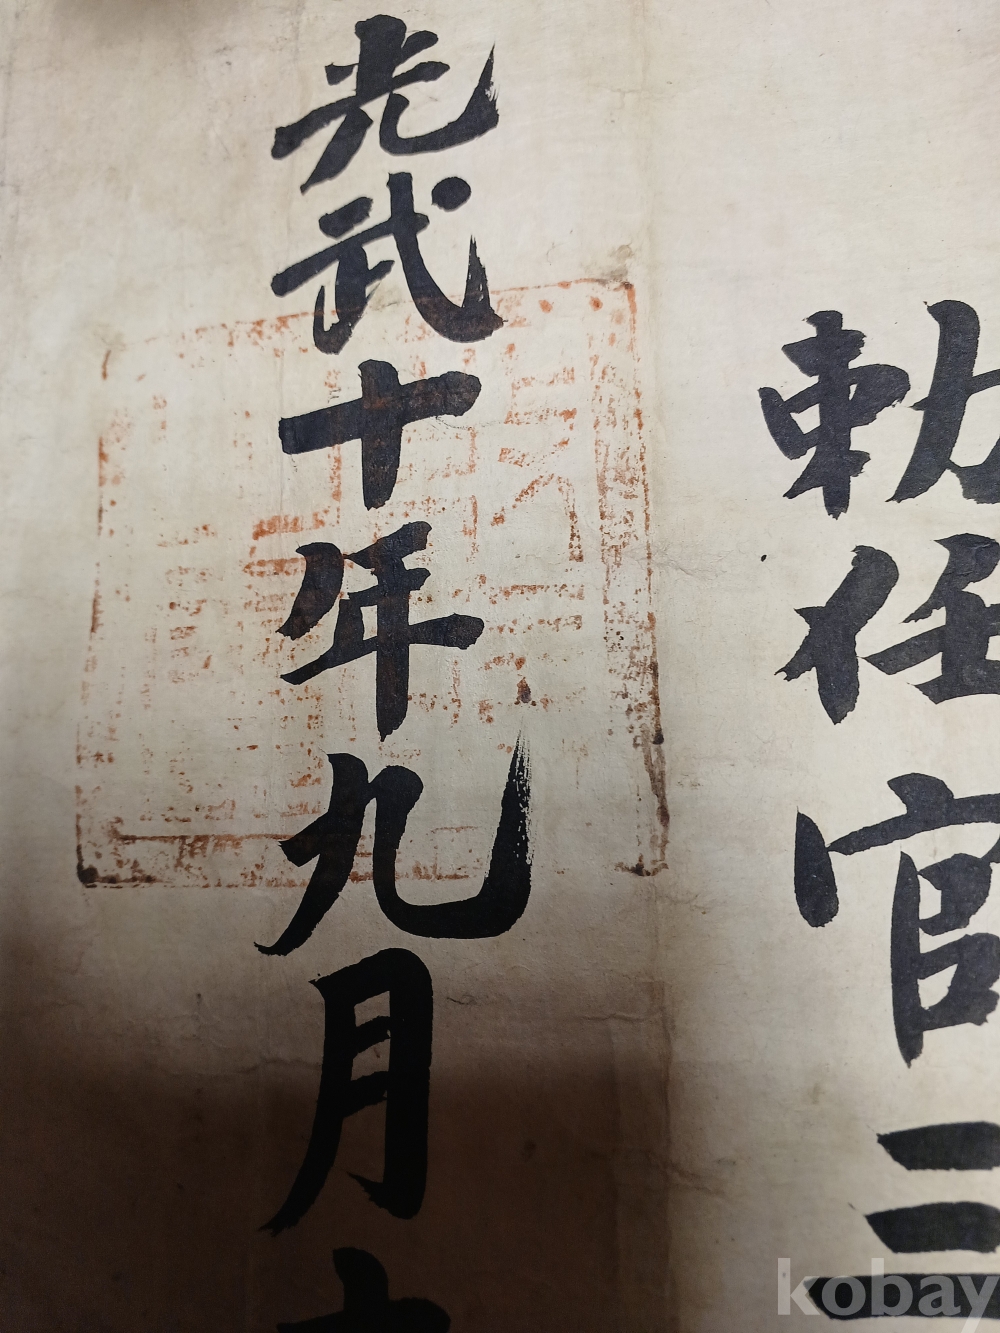 勅任官三
光武十年九月
kobay